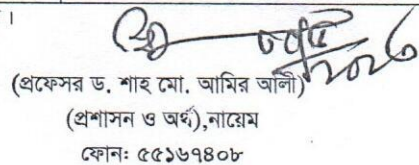 ।
(প্রফেসর ড. শাহ মো. আমির আলী)
(প্রশাসন ও অর্থ),নায়েম
ফোনঃ ৫৫১৬৭৪০৮